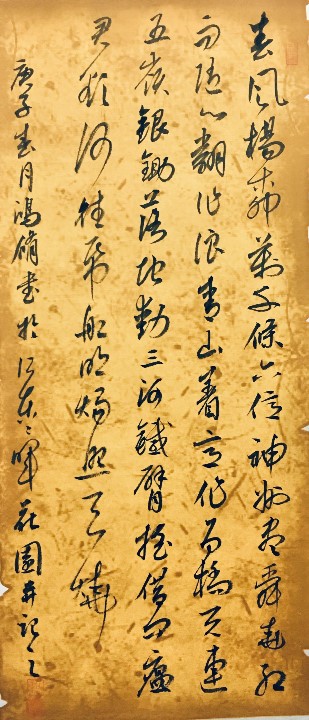 春風楊柳萬千條六億神州盡舜堯紅
雨随心翻作浪青山着意化为橋天連
五嶺銀鋤落地動三河鐵臂摇借问瘟
君欲何往纸船明燭照天燒
庚子春月鴻書於江東暉花園并記之